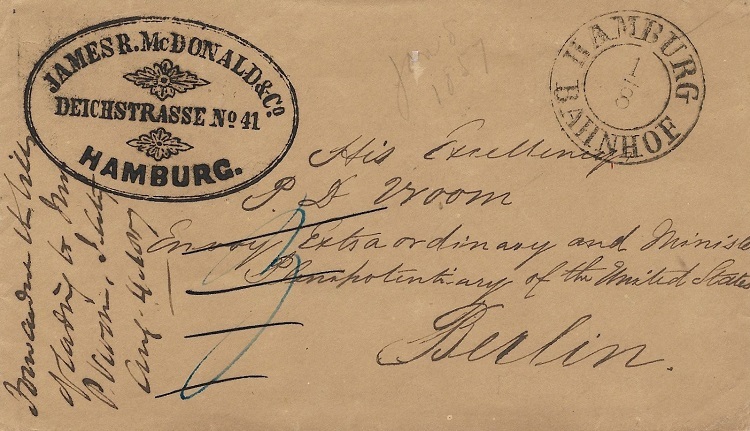 JAMES R. McDONALD & Co
DEICHSTRASSE No 41
HAMBURG.
HAMBURG
1/8
BAHNHOF
1857
His Excellency
P D Vroom
Envoy Extraordinary and Ministe
Plenipotentiary of the United States
Berlin.
of lading to
Aug.